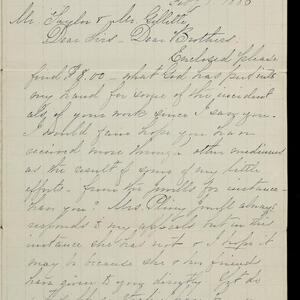 Mr. Taylor & Mr. Gillette
Dear Sirs - Dear Brothers,
Enclosed please
find $8.00 - what God has put into
my hand for some of the incident
als of your work since I saw you.
I would fain hope you have
received more through other mediums
as the result of some of my little
efforts - from for instance
has you? Mrs. always
responds to my appeals but in this
instance she has not & I hope it
may be because she & my friend
have given to you directly